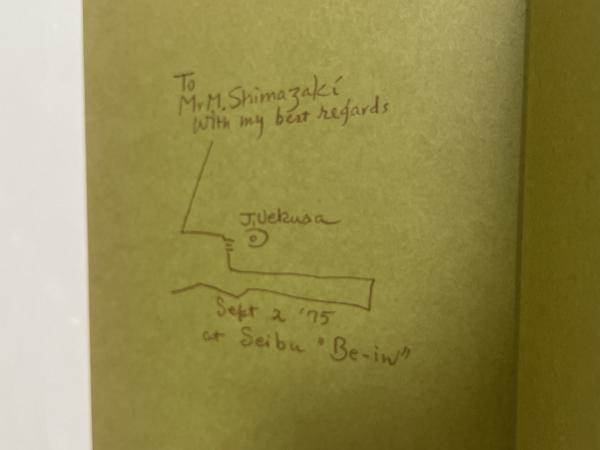 To
Mr M. Shimazaki
With my best regards
J. Uekusa
Sept 2 '75
at Seibu "Be-in"